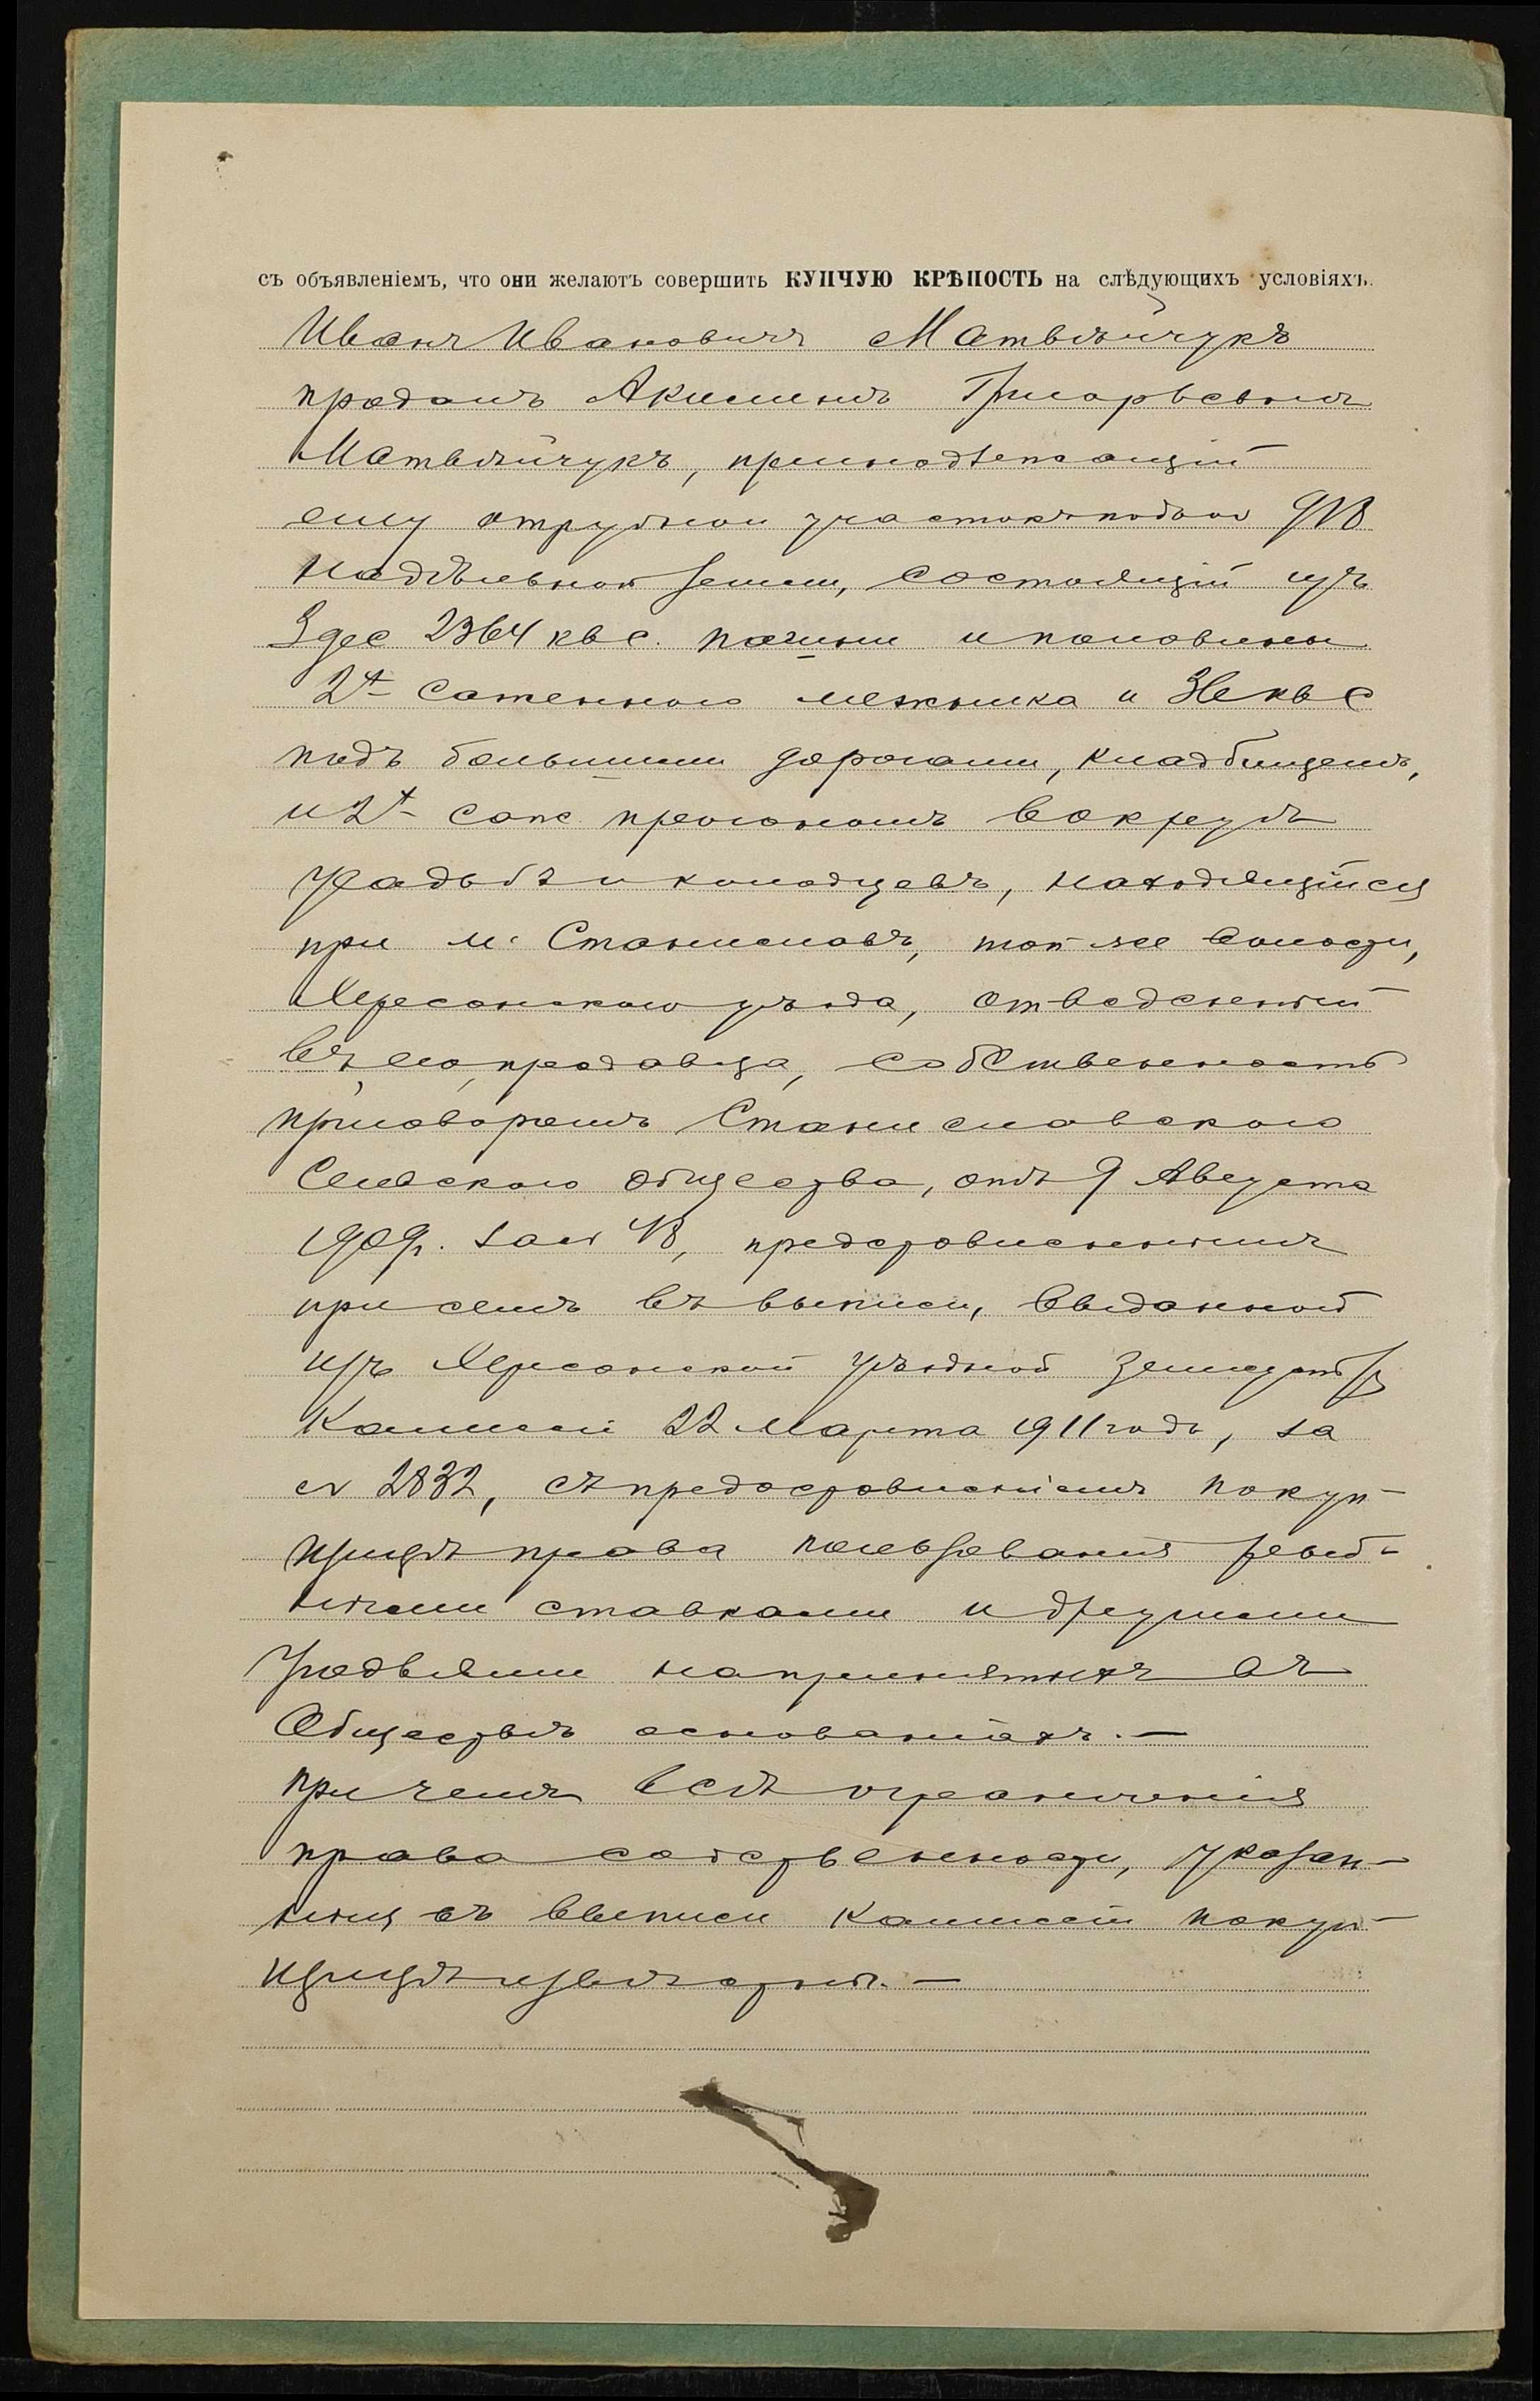 съ объявленіемъ, что они желаютъ совершить КУПЧУЮ КРѢПОСТЬ на слѣдующихъ условіяхъ.
Иванъ Ивановичъ Матвѣйчукъ
продалъ Григорьевнѣ
Матвѣйчукъ, принадлежащій
ему отрубной участокъ подъ №
надѣльной земли, состоящій изъ
9 дес 2364 кв с. пашни и половины
2х саженнаго межника и кв с
подъ большими дорогами, кладбищемъ,
и 2х саж прогономъ вокругъ
усадьбъ и колодцевъ, находящійся
при м. Станиславѣ, той-же волости,
Херсонскаго уѣзда, отведенный
въ его, продавца, собственность
приговоромъ Станиславскаго
Сельскаго общества, отъ 9 Августа
1909г. за №, представленнымъ
при семъ въ выписи, выданной
изъ Херсонской уѣздной землеустр
Комиссіи 22 Марта 1911 года, за
№ 2832, съ предоставленіемъ покуп-
щицѣ права пользованія рыб-
ными ставками и другими
угодьями на принятыхъ въ
Обществѣ основаніяхъ. —
при чемъ всѣ ограниченія
права собственности, указан-
ныя въ выписи Комиссіи покуп-
щицѣ извѣстны. —